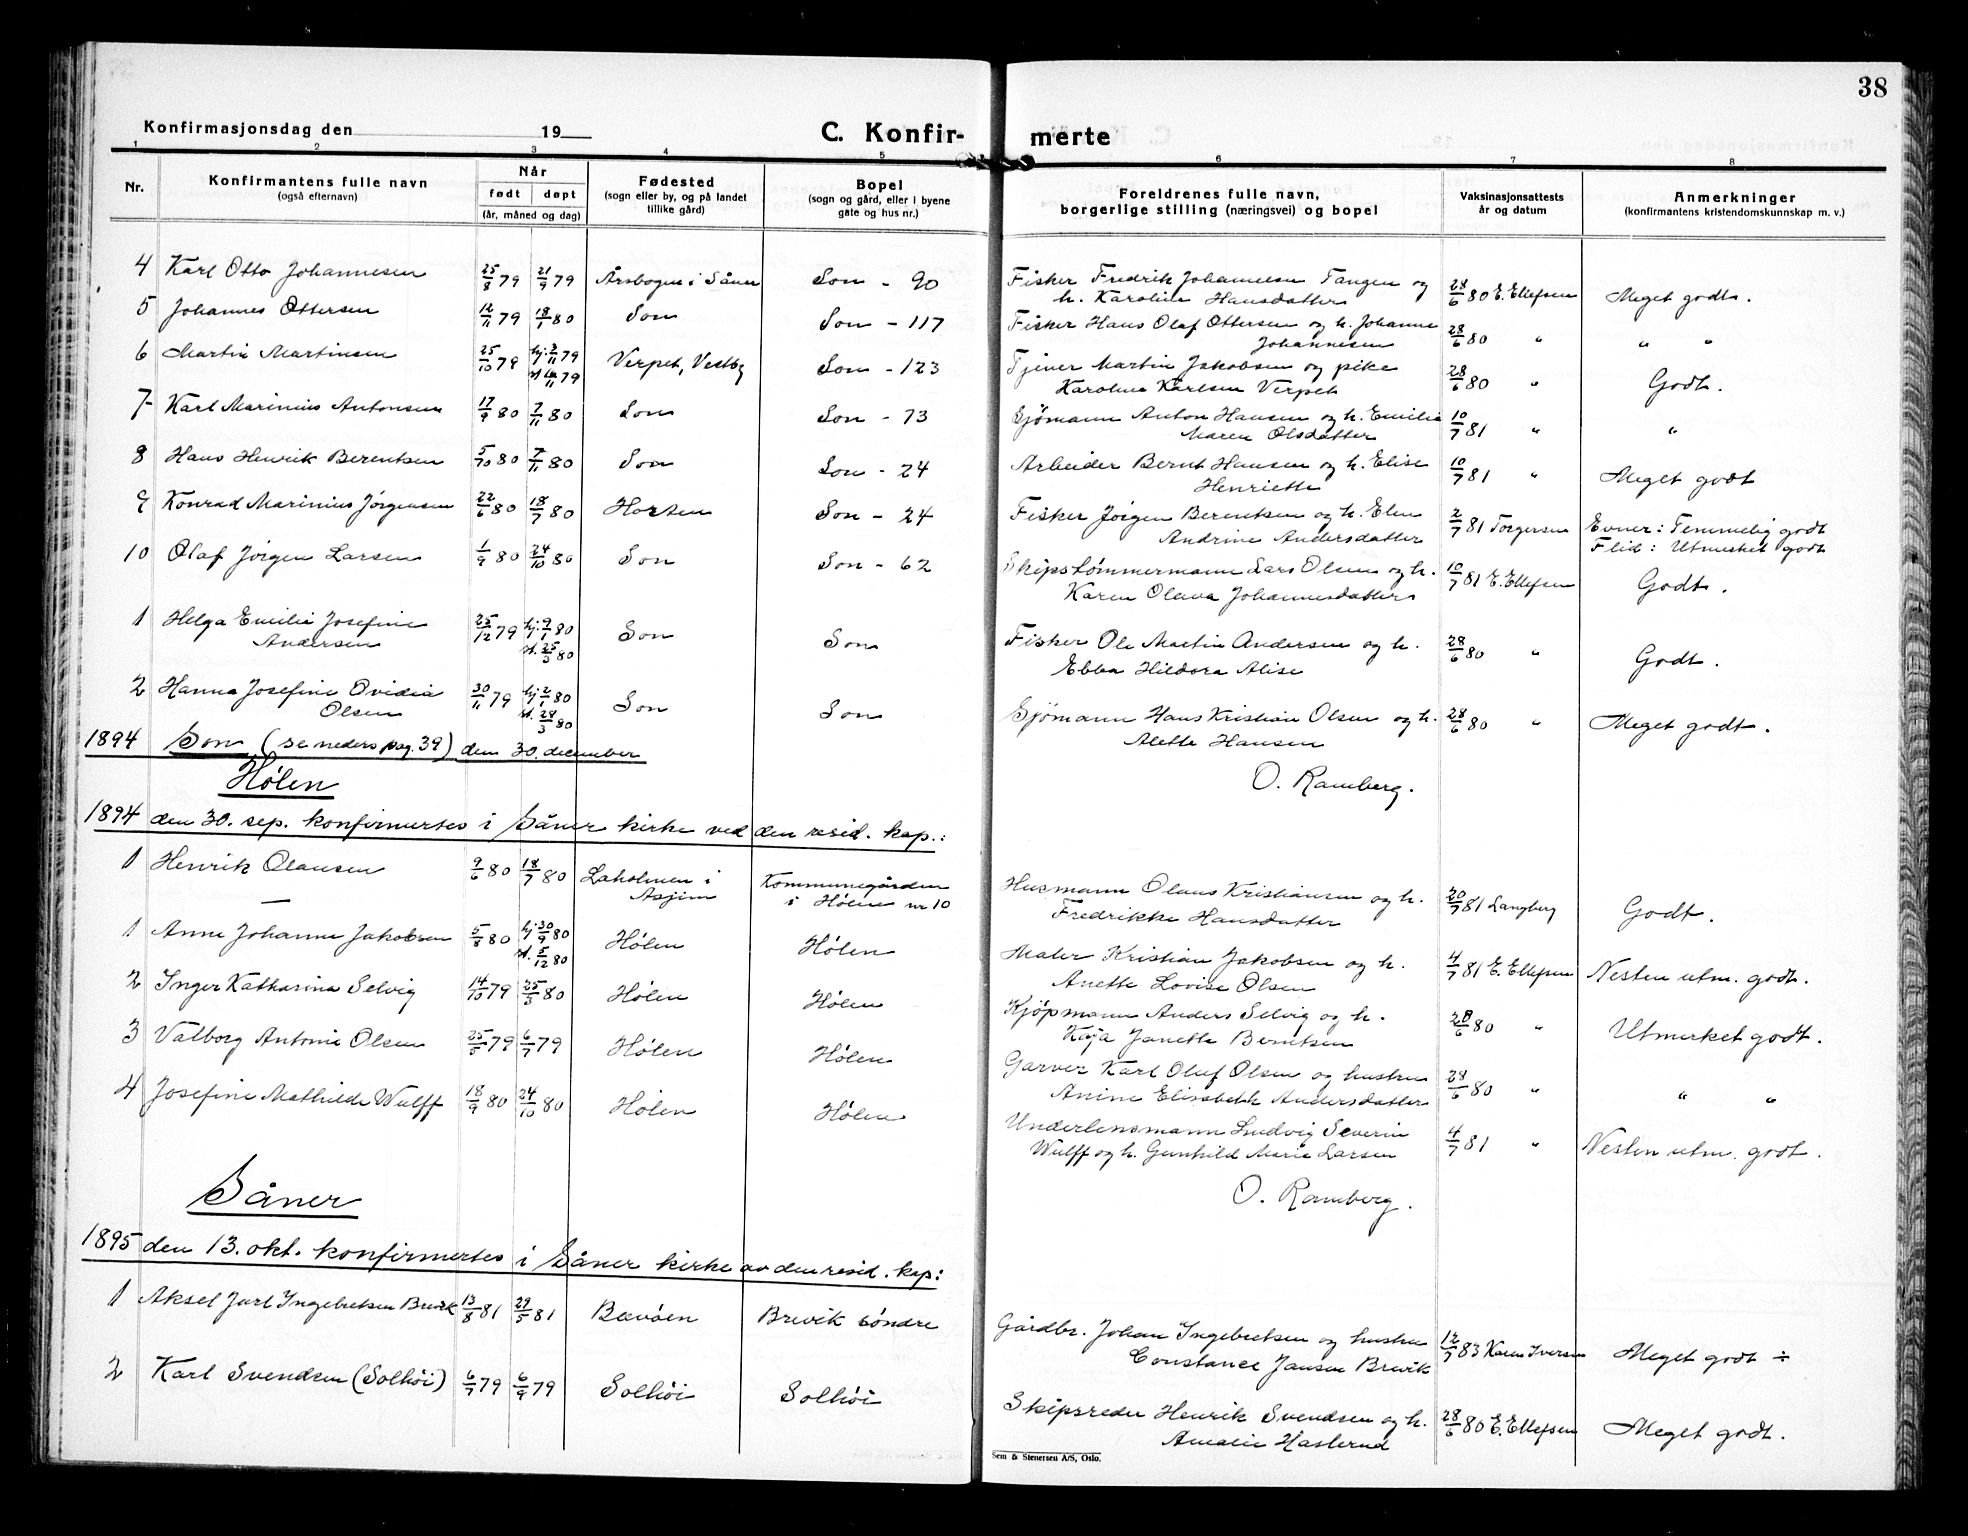 38
Konfirmasjonsdag den 19
C. Konfir- merte
1 2 3 4 5 6 7 8
Nr.
Konfirmantens fulle navn
(også efternavn)
Når
født døpt
(år, måned og dag)
Fødested
(sogn eller by, og på landet
tillike gård)
Bopel
(sogn og gård, eller i byene
gate og hus nr.)
Foreldrenes fulle navn,
borgerlige stilling (næringsvei) og bopel
Vaksinasjonsattests
år og datum
Anmerkninger
(konfirmantens kristendomskunnskap m. v.)
4 Karl Otto Johannesen 25/8 79 21/9 79 Årsbogen i Såner Son - 90 Fisker Fredrik Johannesen Tangen og 28/6 80 E. Ellefsen Meget godt.
h. Karoline Hansdatter
5 Johannes Ottersen 12/11 79 18/1 80 Son Son - 117 Fisker Hans Olaf Ottersen og h. Johanne 28/6 80 " " "
Johannesen
6 Martin Martinsen 25/10 79 hj. 2/11 79 Verpet, Vestby Son - 123 Tjener Martin Jakobsen og pike 28/6 80 " Godt.
11 79 Karoline Karlsen Verpet
7 Karl Marinius Antonsen 17/9 80 7/11 80 Son Son - 73 Sjömann Anton Hansen og h. Emilie 10/7 81 " "
Maren Olsdatter
8 Hans Henrik Berentsen 5/10 80 7/11 80 Son Son - 24 Arbeider Bernt Hansen og h. Elise 10/7 81 " Meget godt
Henriette
9 Konrad Marinius Jörgensen 22/6 80 18/7 80 Horten Son - 24 Fisker Jörgen Berentsen og h. Elen 2/7 81 Torgersen Evner: Temmelig godt
Andrine Andersdatter Flid: Utmerket godt
10 Olaf Jörgen Larsen 1/9 80 24/10 80 Son Son - 62 Skipstömmermann Lars Olsen og h. 10/7 81 E. Ellefsen Godt.
Karen Olava Johannesdatter
1 Helga Emilie Josefine 25/12 79 hj. 9/1 80 Son Son Fisker Ole Martin Andersen og h. 28/6 80 " Godt.
Andersen st. 25/3 80 Ebba Hildora Alise
2 Hanna Josefine Ovidia 30/11 79 hj. 2/1 80 Son Son Sjömann Hans Kristian Olsen og h. 28/6 80 " Meget godt.
Olsen st. 28/3 80 Alette Hansen
1894 Son (se neders pag. 39) den 30. december
O. Ramberg.
Hölen
1894 den 30. sep. konfirmertes i Såner kirke ved den resid. kap.:
1 Henrik Olausen 9/6 80 18/7 80 Laholmen i Kommunegården Husmann Olaus Kristiansen og h. 20/7 81 Langberg Godt.
Asjim i Hölen nr 10 Fredrikke Hansdatter
1 Anne Johanne Jakobsen 5/8 80 hj. 30/9 80 Hölen Hölen Maler Kristian Jakobsen og h. 4/7 81 E. Ellefsen Nesten utm. godt.
st. 5/12 80 Anette Lovise Olsen
2 Inger Katharina Selvig 14/10 79 25/3 80 Hölen Hölen Kjöpmann Anders Selvig og h. 28/6 80 " Utmerket godt.
Kaja Janette Berntsen
3 Valborg Antonie Olsen 25/5 79 6/7 79 Hölen Hölen Garver Karl Oluf Olsen og hustru 28/6 80 " " "
Anine Elisabeth Andersdatter
4 Josefine Mathilde Wulff 18/9 80 24/10 80 Hölen Hölen Underlensmann Ludvig Severin 4/7 81 " Nesten utm. godt.
Wulff og h. Gunhild Marie Larsen
O. Ramberg.
Såner
1895 den 13. okt. konfirmertes i Såner kirke av den resid. kap:
1 Aksel Jarl Ingebretsen Brevik 13/8 81 29/5 81 Bævöen Brevik söndre Gårdbr. Johan Ingebretsen og hustru 12/7 83 Karen Iversen Meget godt ÷
Constance Jansen Brevik
2 Karl Svendsen (Solhöi) 6/7 79 6/9 79 Solhöi Solhöi Skipsreder Henrik Svendsen og h. 28/6 80 E. Ellefsen Meget godt.
Amalie Haslerud
Sem & Stenersen A/S, Oslo.